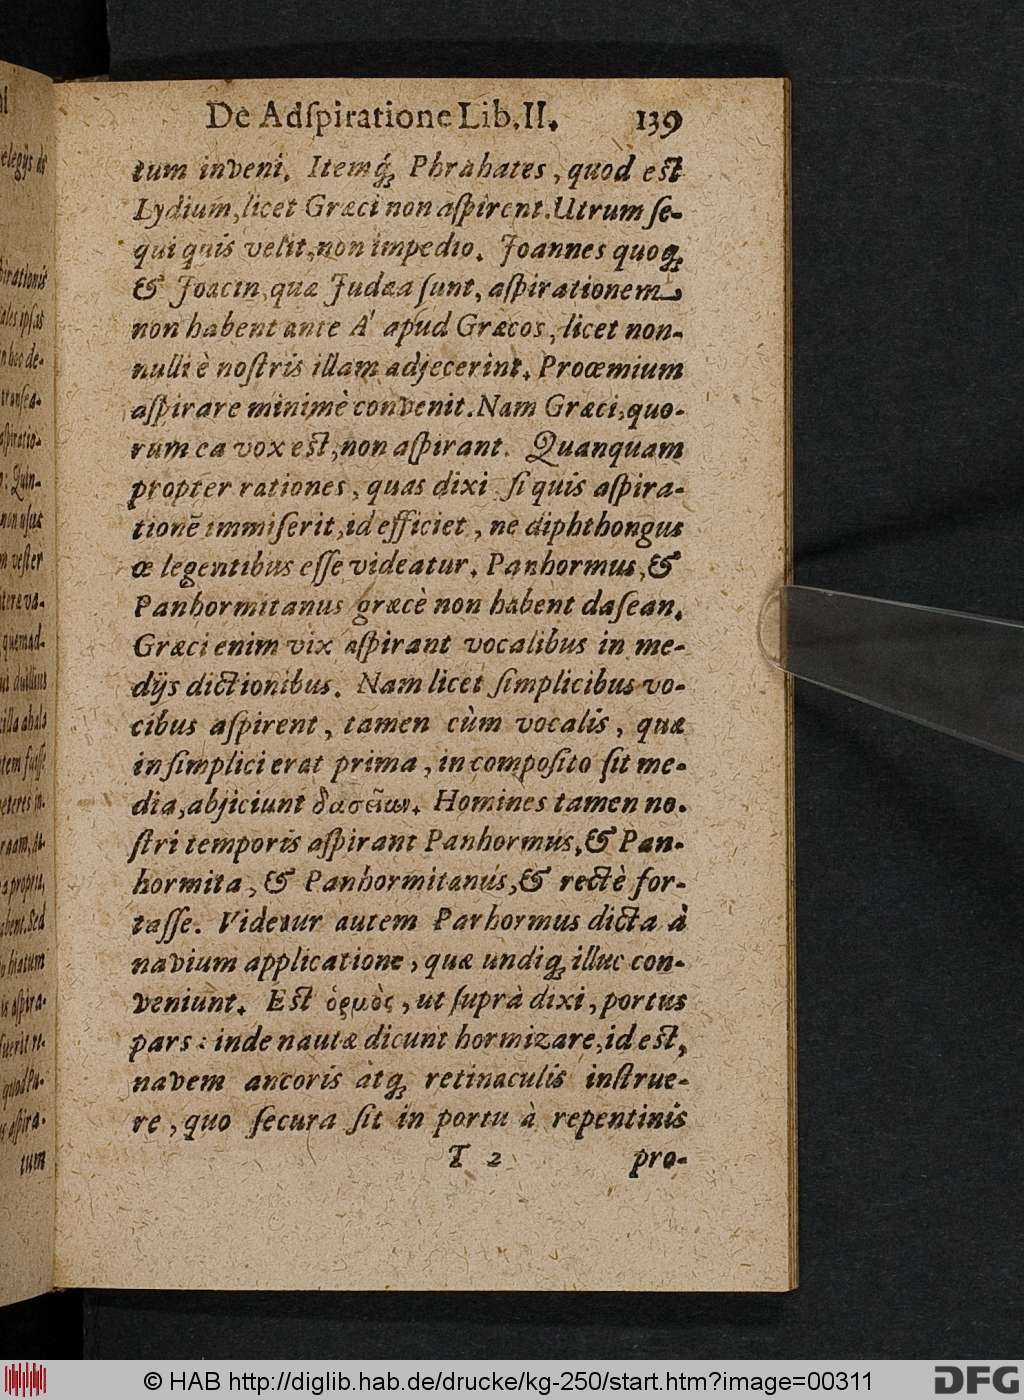 De Adſpiratione Lib. II. 139
tum inveni. Itemq́; Phrahates, quod est
Lydium, licet Græci non aſpirent. Utrum ſe-
qui quis velit, non impedio. Joannes quoq;
& Joacin, quæ Judæa ſunt, aſpirationem
non habent ante A' apud Græcos, licet non-
nulli è noſtris illam adjecerint. Proœmium
aſpirare minimè convenit. Nam Græci, quo-
rum ea vox est, non aſpirant. Quanquam
propter rationes, quas dixi ſi quis aſpira-
tionē immiſerit, id efficiet, ne diphthongus
œ legentibus eſſe videatur. Panhormus, &
Panhormitanus græcè non habent daſean.
Græci enim vix aſpirant vocalibus in me-
dijs dictionibus. Nam licet ſimplicibus vo-
cibus aſpirent, tamen cùm vocalis, quæ
in ſimplici erat prima, in compoſito ſit me-
dia, abjiciunt δασεῖαν. Homines tamen no-
ſtri temporis aſpirant Panhormus, & Pan-
hormita, & Panhormitanus, & rectè for-
taſſe. Videtur autem Parhormus dicta à
navium applicatione, quæ undiq; illuc con-
veniunt. Est ὁρμὸς, ut ſuprà dixi, portus
pars: inde nautæ dicunt hormizare, id est,
navem ancoris atq; retinaculis inſtrue-
re, quo ſecura ſit in portu à repentinis
T 2 pro-
© HAB http://diglib.hab.de/drucke/kg-250/start.htm?image=00311
DFG